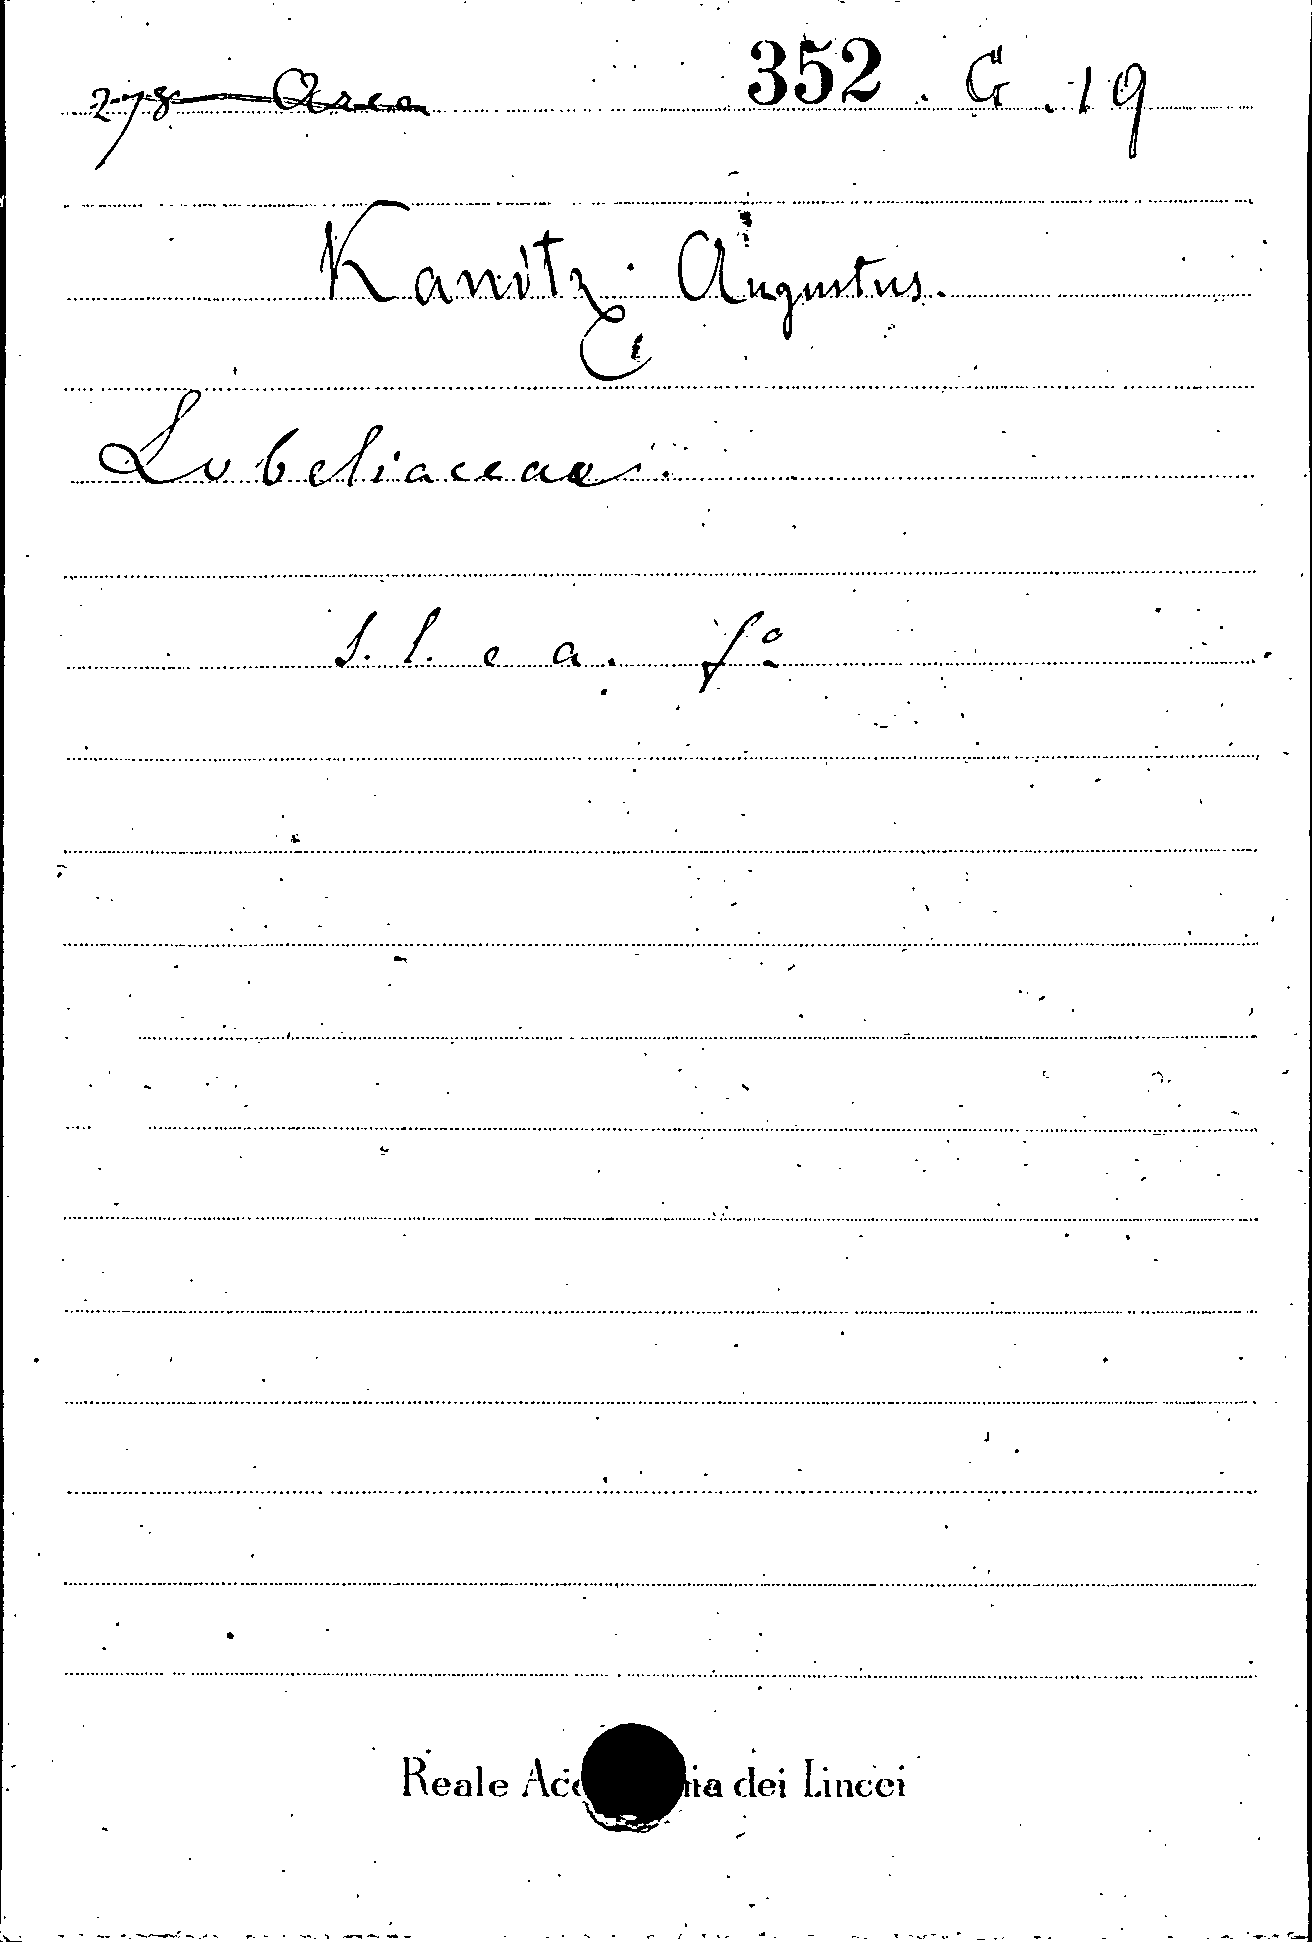 278 Area 352. G. 19
Kanitz Augustus.
Lobeliaceae.
s. l. e a. fº
Reale Acc ia dei Lincei